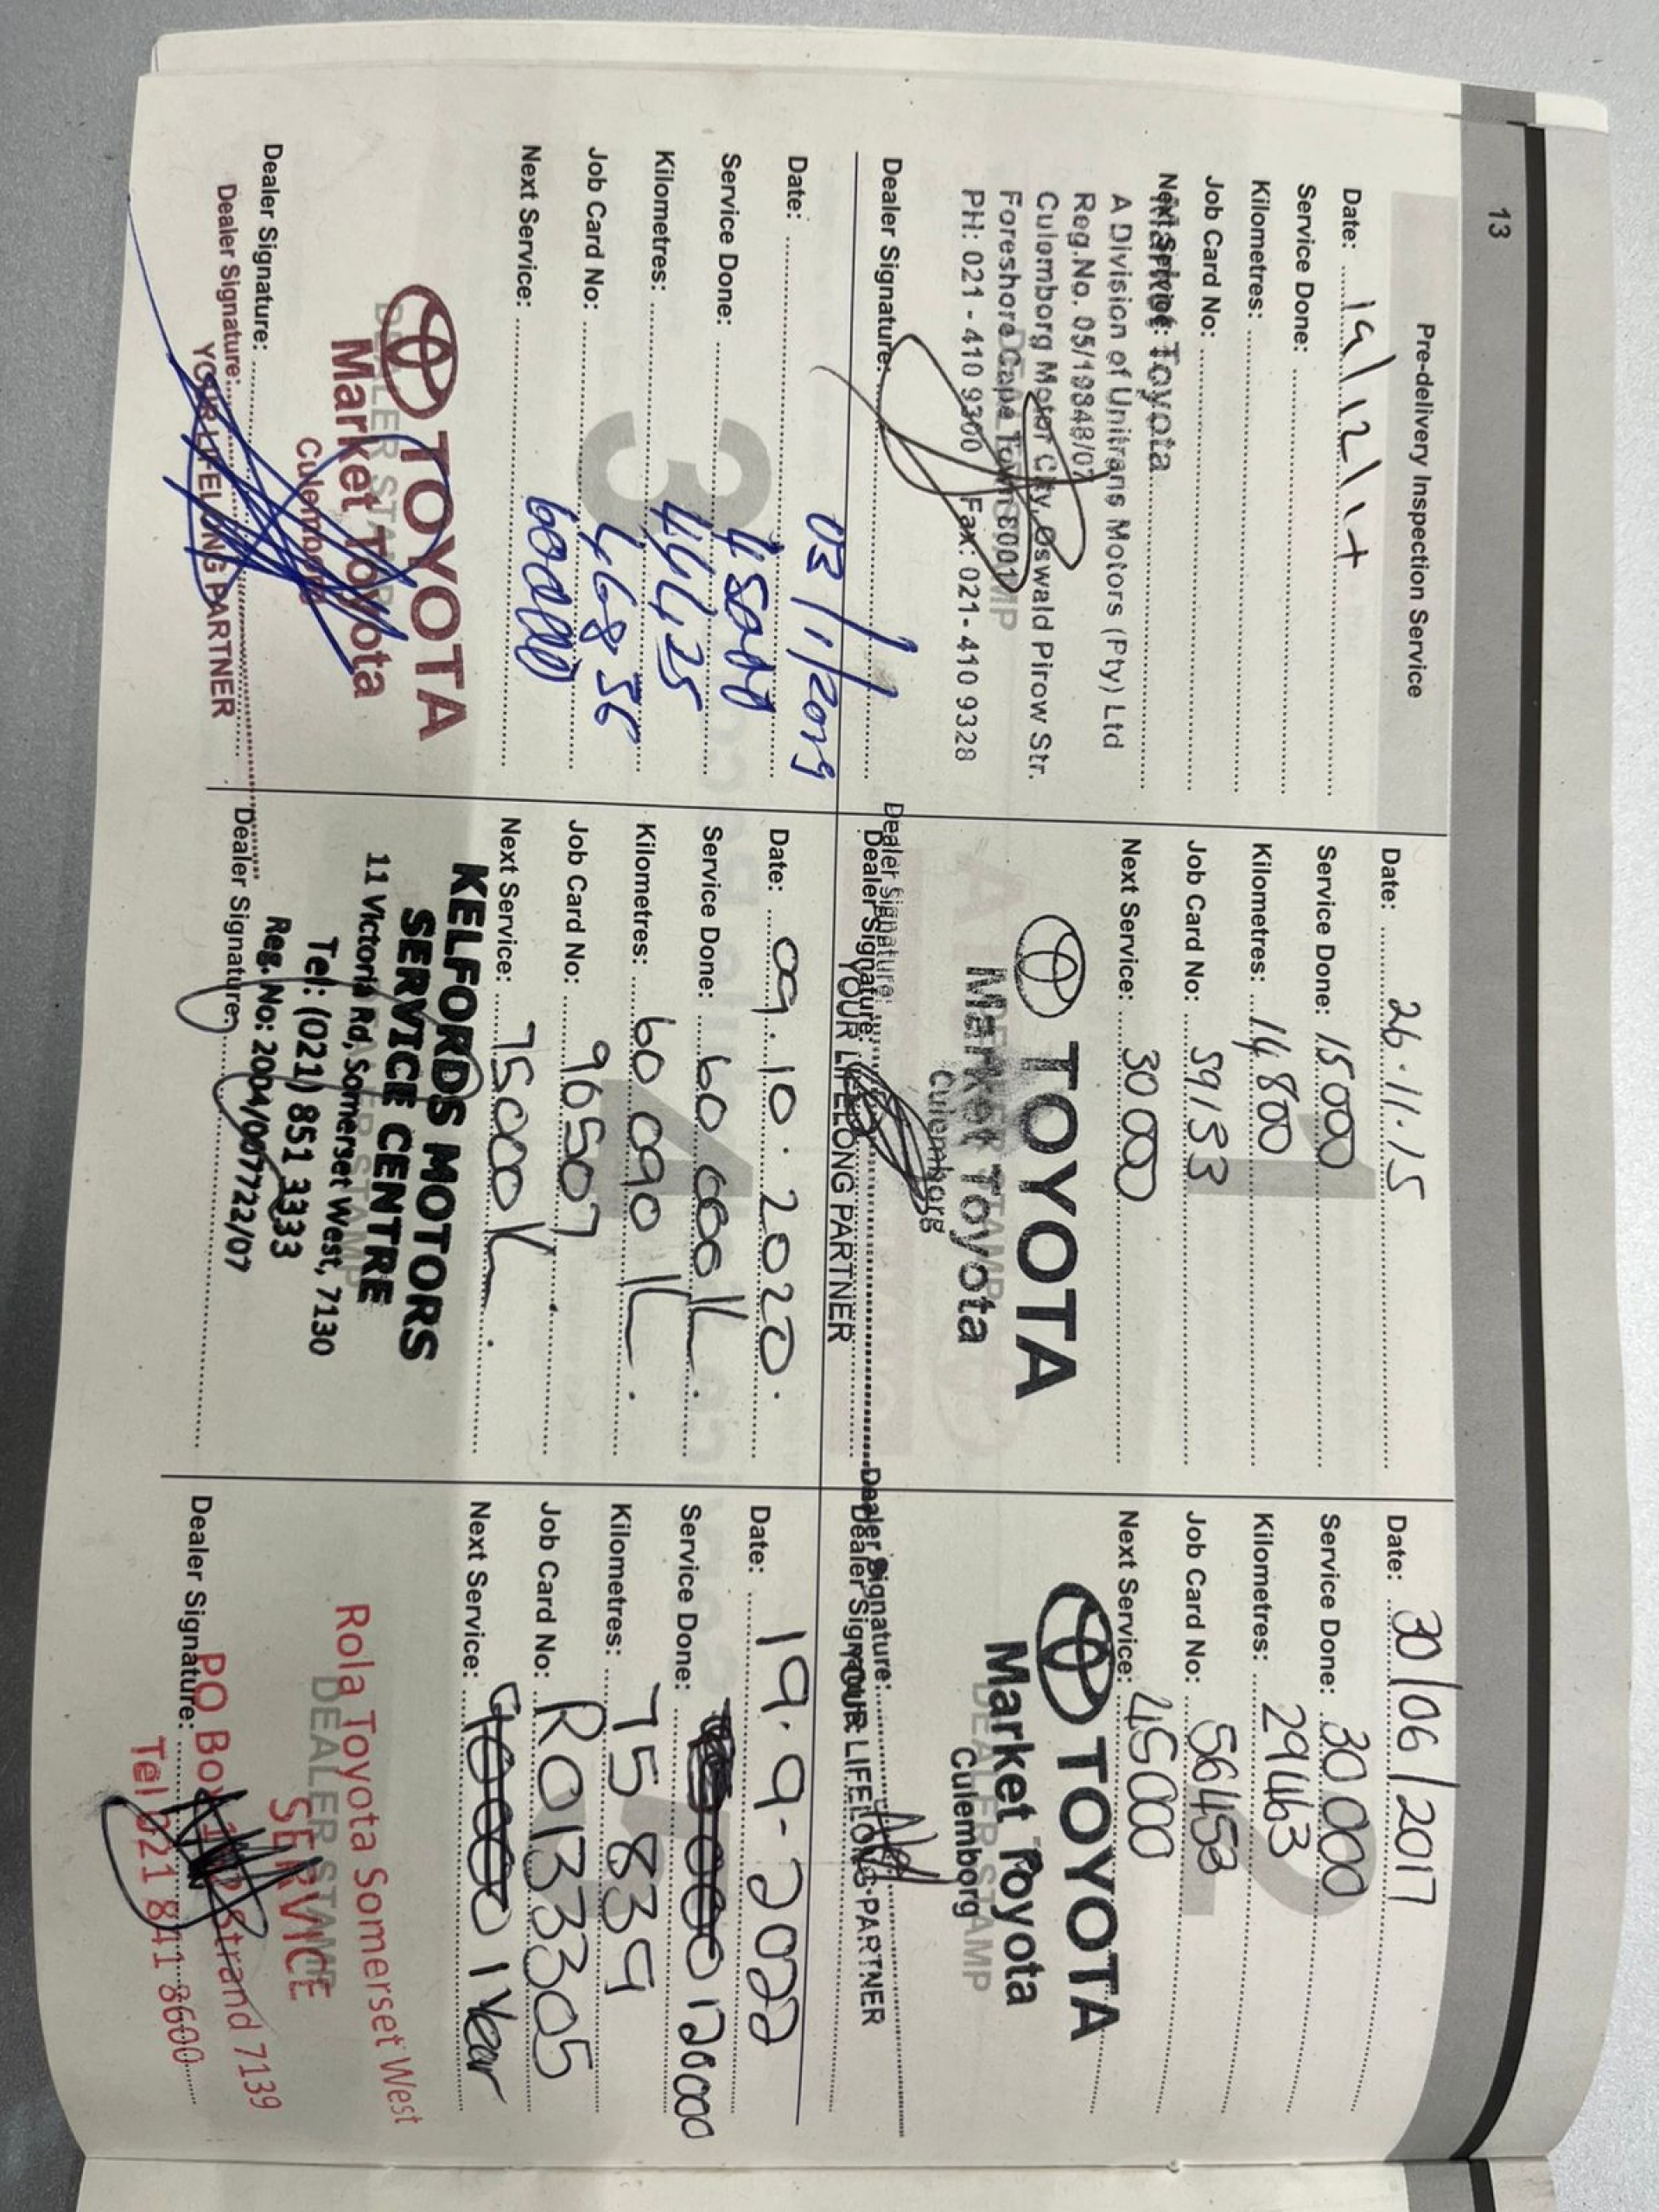 13
Pre-delivery Inspection Service
Date: 19/12/14
Service Done:
Kilometres:
Job Card No:
Next Service:
Market Toyota
A Division of Unitrans Motors (Pty) Ltd
Reg.No. 05/19848/07
Culomborg Motor City, Oswald Pirow Str.
Foreshore Cape Town 8001
PH: 021 - 410 9300 Fax: 021- 410 9328
DEALER STAMP
Dealer Signature:
1
Date: 26.11.15
Service Done: 15000
Kilometres: 14 800
Job Card No: 59133
Next Service: 30 000
TOYOTA
Market Toyota
Culemborg
DEALER STAMP
Dealer Signature:
Dealer Signature:
YOUR LIFELONG PARTNER
2
Date: 30/06/2017
Service Done: 30 000
Kilometres: 29463
Job Card No: 56453
Next Service: 45000
TOYOTA
Market Toyota
Culemborg
DEALER STAMP
Dealer Signature:
Dealer Signature:
YOUR LIFELONG PARTNER
3
Date: 03/1/2019
Service Done: 45000
Kilometres: 44425
Job Card No: 46856
Next Service: 60000
TOYOTA
Market Toyota
Culemborg
DEALER STAMP
Dealer Signature:
Dealer Signature:
YOUR LIFELONG PARTNER
4
Date: 09.10.2020.
Service Done: 60 000 K.
Kilometres: 60 090 K.
Job Card No: 96507
Next Service: 75000 K.
KELFORDS MOTORS
SERVICE CENTRE
11 Victoria Rd, Somerset West, 7130
Tel: (021) 851 3333
Reg. No: 2004/007722/07
DEALER STAMP
Dealer Signature:
5
Date: 19.9-2022
Service Done: 120000
Kilometres: 75 839
Job Card No: R0133305
Next Service: 90000 1 Year
Rola Toyota Somerset West
DEALER STAMP
SERVICE
PO Box Strand 7139
Tel 021 841 8600
Dealer Signature: